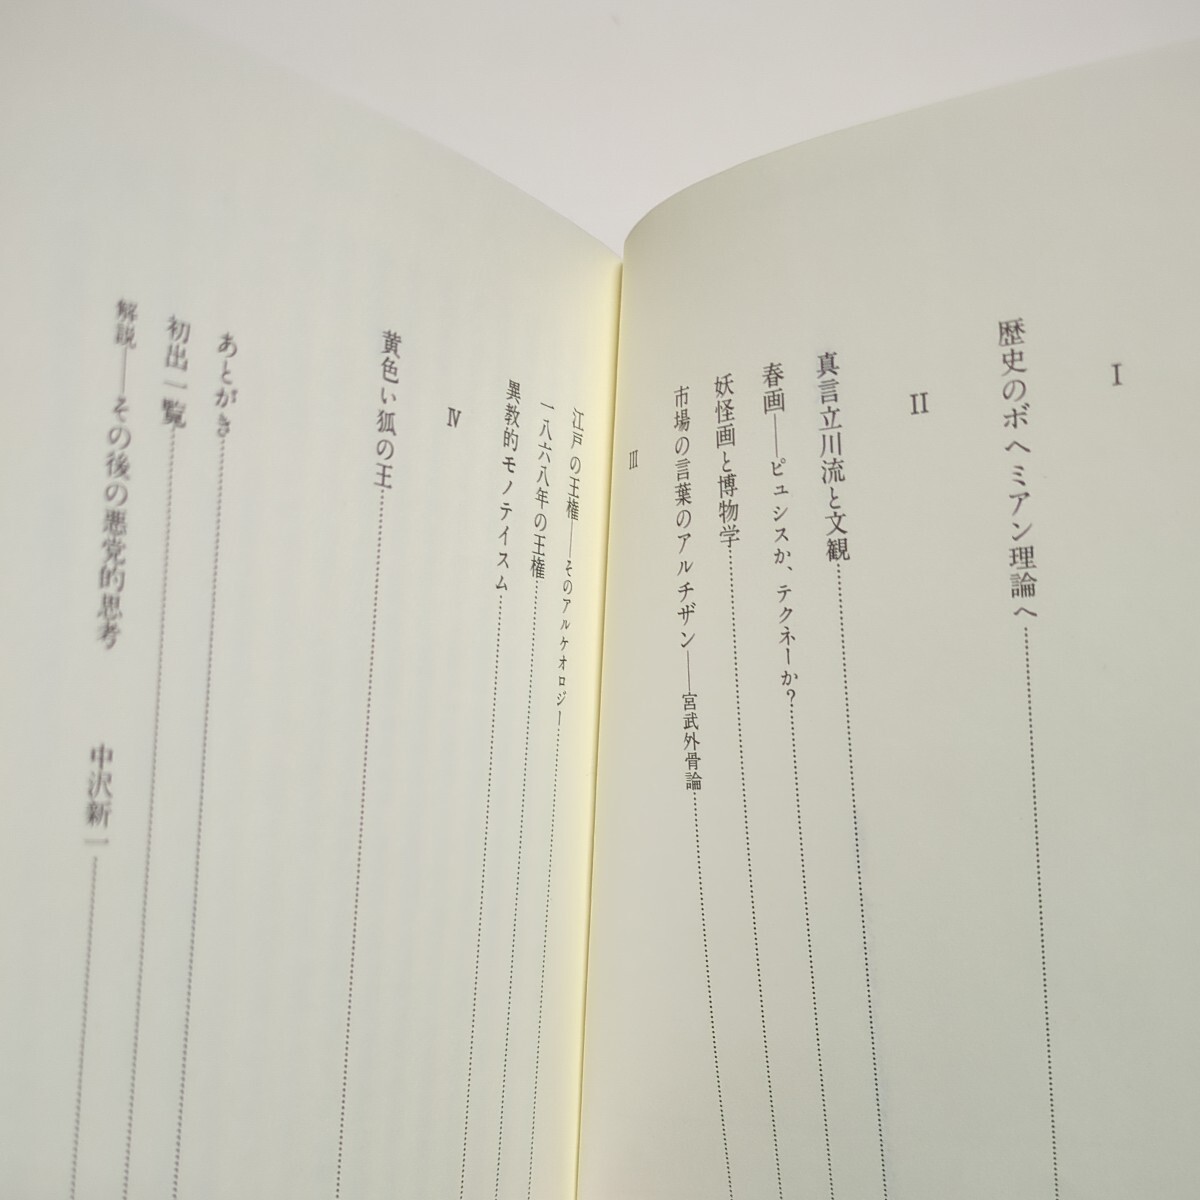 I
歴史のボヘミアン理論へ
II
真言立川流と文観
春画——ピュシスか、テクネーか?
妖怪画と博物学
市場の言葉のアルチザン——宮武外骨論
III
江戸の王権——そのアルケオロジー
一八六八年の王権
異教的モノテイスム
IV
黄色い狐の王
あとがき
初出一覧
解説——その後の悪党的思考 中沢新一